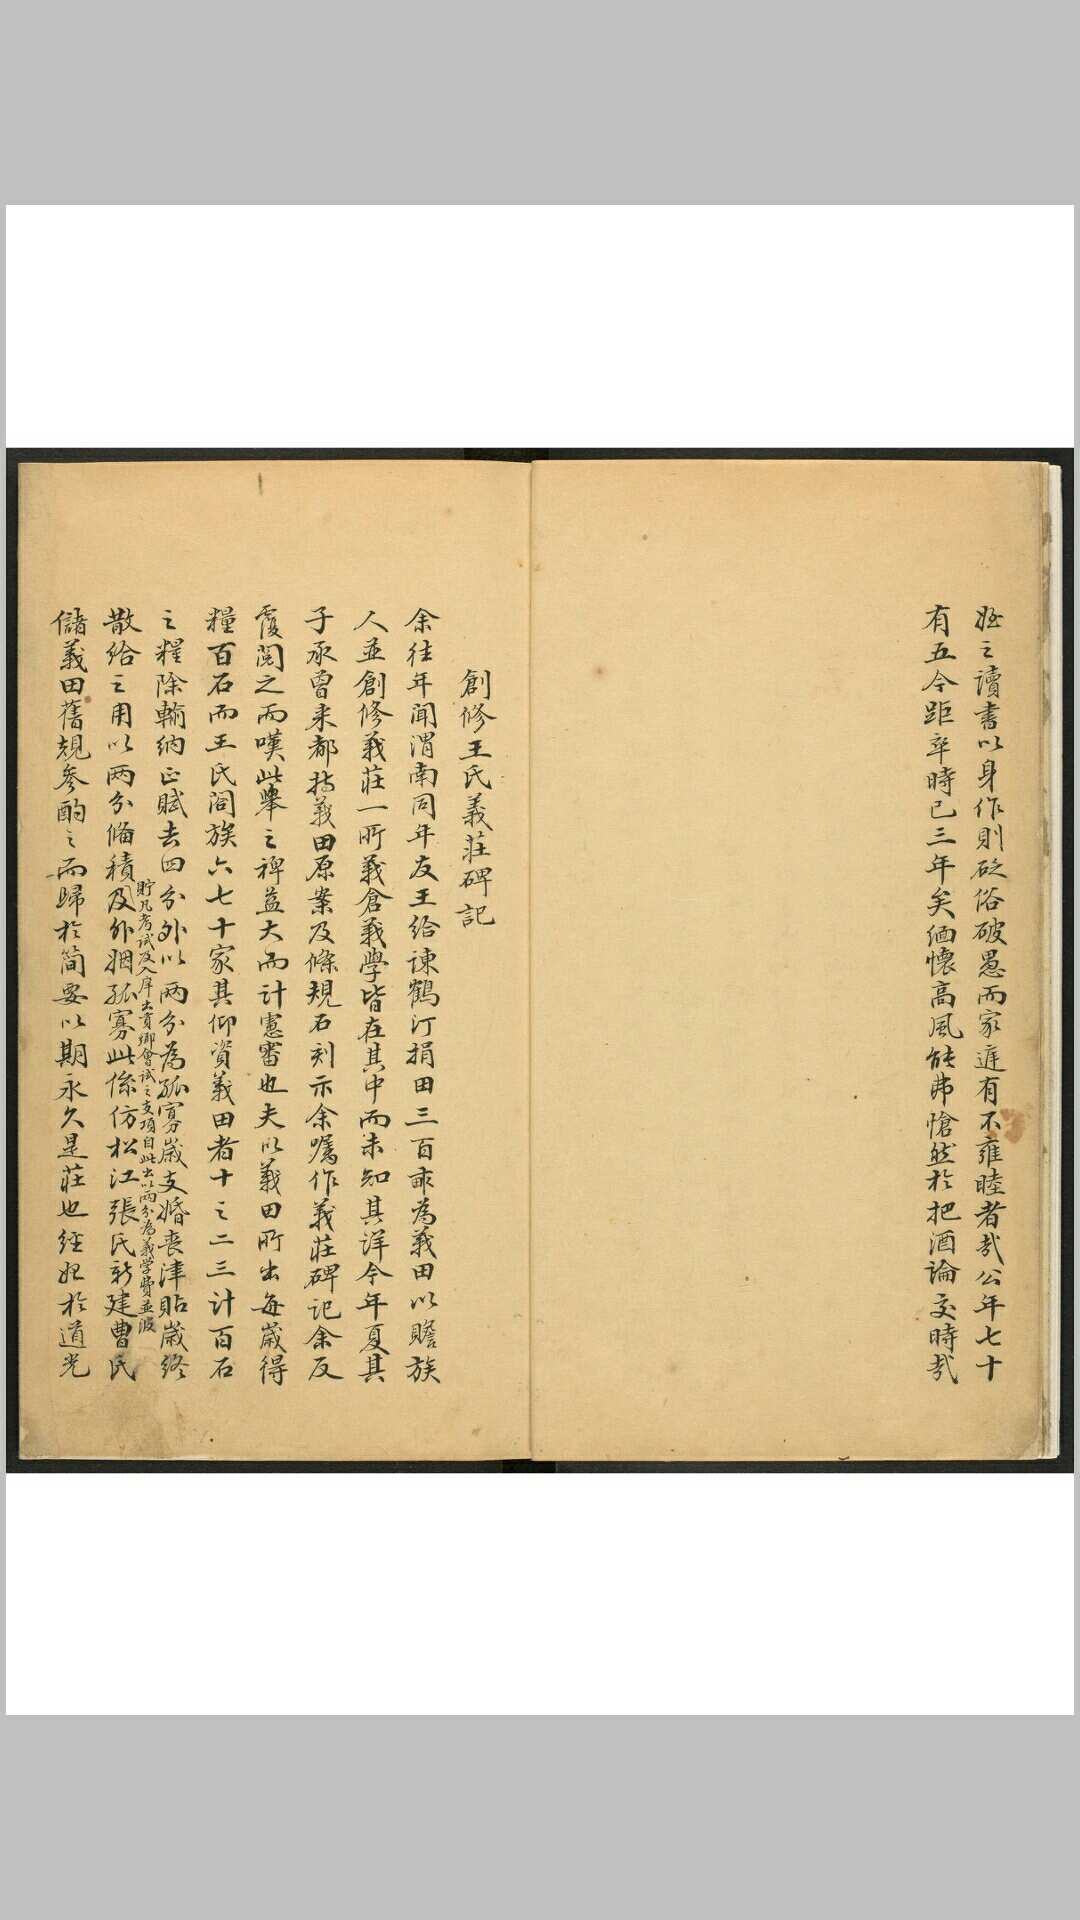 姪之讀書以身作則砭俗破愚而家庭有不雍睦者哉公年七十
有五今距卒時已三年矣緬懷高風能弗愴然於把酒論交時哉
創修王氏義莊碑記
余往年聞渭南同年友王給諫鶴汀捐田三百畝為義田以贍族
人並創修義莊一所義倉義學皆在其中而未知其詳今年夏其
子承曾来都持義田原案及條規石刻示余囑作義莊碑記余反
覆閱之而嘆此舉之裨益大而計慮審也夫以義田所出每歲得
糧百石而王氏闔族六七十家其仰資義田者十之二三計百石
之糧除輸納正賦去四分外以兩分為孤寡歲支婚喪津貼歲終
貯凡考試及入庠出貢鄉會試之支項自此出以兩分為義学費並
散給之用以兩分備積及外姻孤寡此係仿松江張氏新建曹氏
儲義田舊規參酌之而歸於簡要以期永久是莊也經始於道光